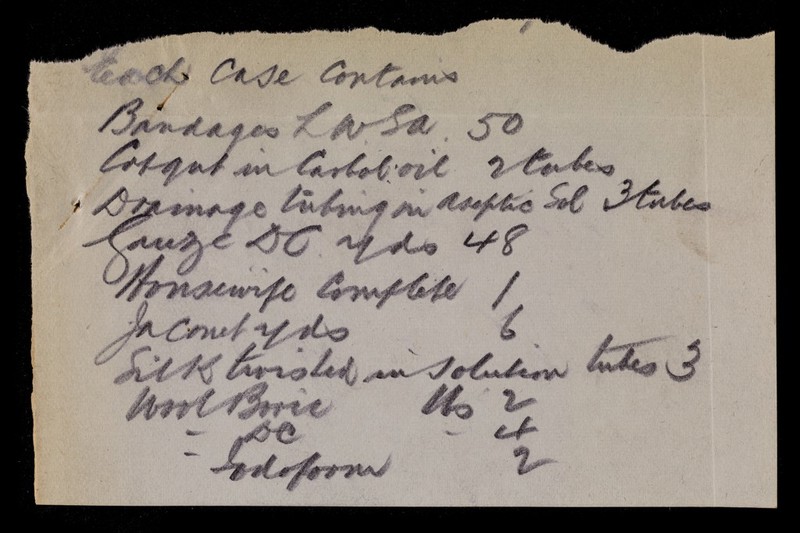 Each Case Contains
Bandages L W Sa. 50
Catgut in Carbol: oil 2 tubes
Drainage tubing in aseptic Sol 3 tubes
Gauze DC yds 48
Housewife Complete 1
Jaconet yds 6
Silk twisted in solution tubes 3
Wool Boric lbs 2
- DC - 4
- Iodoform 2